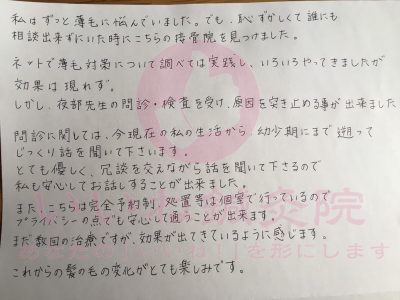 私はずっと薄毛に悩んでいました。でも、恥ずかしくて誰にも
相談出来ずにいた時にこちらの接骨院を見つけました。
ネットで薄毛対策について調べては実践し、いろいろやってきましたが
効果は現れず。
しかし、夜部先生の問診・検査を受け、原因を突き止める事が出来ました
問診に関しては、今現在の私の生活から、幼少期にまで遡って
じっくり話を聞いて下さいます。
とても優しく、冗談を交えながら話を聞いて下さるので
私も安心してお話しすることが出来ました。
また、こちらは完全予約制、処置等は個室で行っているので
プライバシーの点でも安心して通うことが出来ます。
まだ数回の治療ですが、効果が出てきているように感じます。
これからの髪の毛の変化がとても楽しみです。
灸院
を形にします